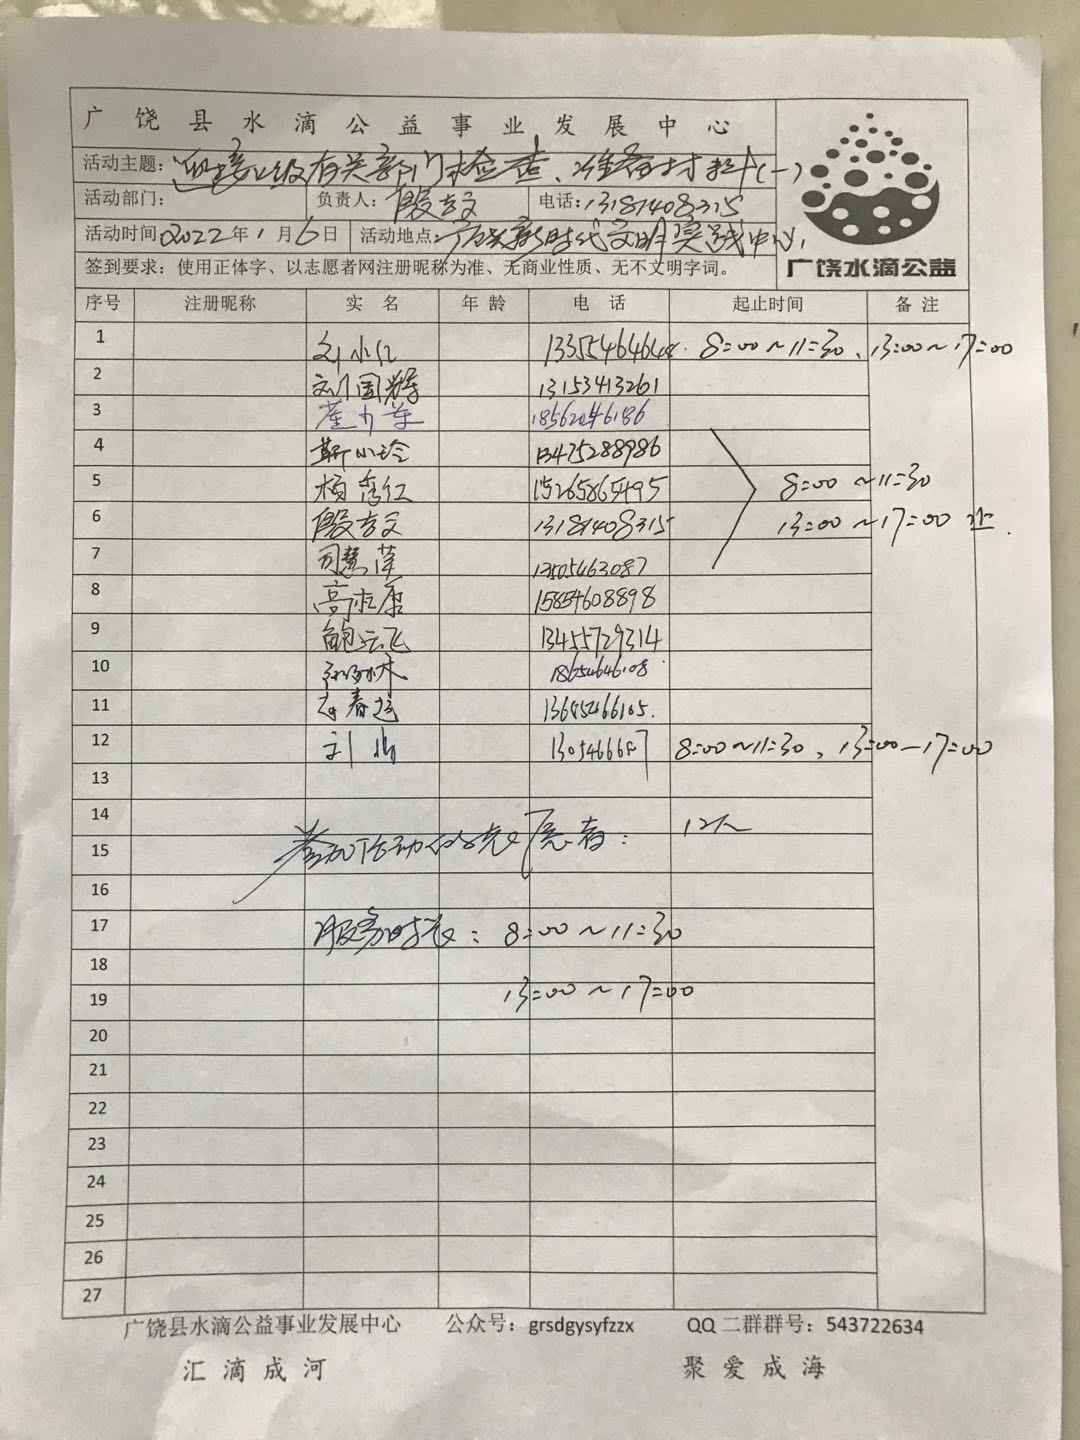 广饶县水滴公益事业发展中心
活动主题：迎接上级有关部门检查、准备材料(一)
活动部门： 负责人：殷玄文 电话：13181408315
活动时间：2022年1月6日 活动地点：广饶新时代文明实践中心
签到要求：使用正体字、以志愿者网注册昵称为准、无商业性质、无不文明字词。
广饶水滴公益
序号 注册昵称 实名 年龄 电话 起止时间 备注
1 刘小红 8:00～11:30、13:00～17:00
2 刘国辉 13153413261
3 18562046186
4 靳小玲 13475288986
5 杨秀红 15265865495 8:00～11:30
6 殷玄文 13181408315 13:00～17:00
7 司慧萍 13505463087
8 15854608898
9 鲍云飞 13455729314
10 18654646108
11 13685466105
12 刘 8:00～11:30、13:00—17:00
13
14
参加活动的志愿者： 12人
15
16
17 服务时长：8:00～11:30
18
19 13:00～17:00
20
21
22
23
24
25
26
27
广饶县水滴公益事业发展中心 公众号：grsdgysyfzzx QQ二群群号：543722634
汇滴成河 聚爱成海